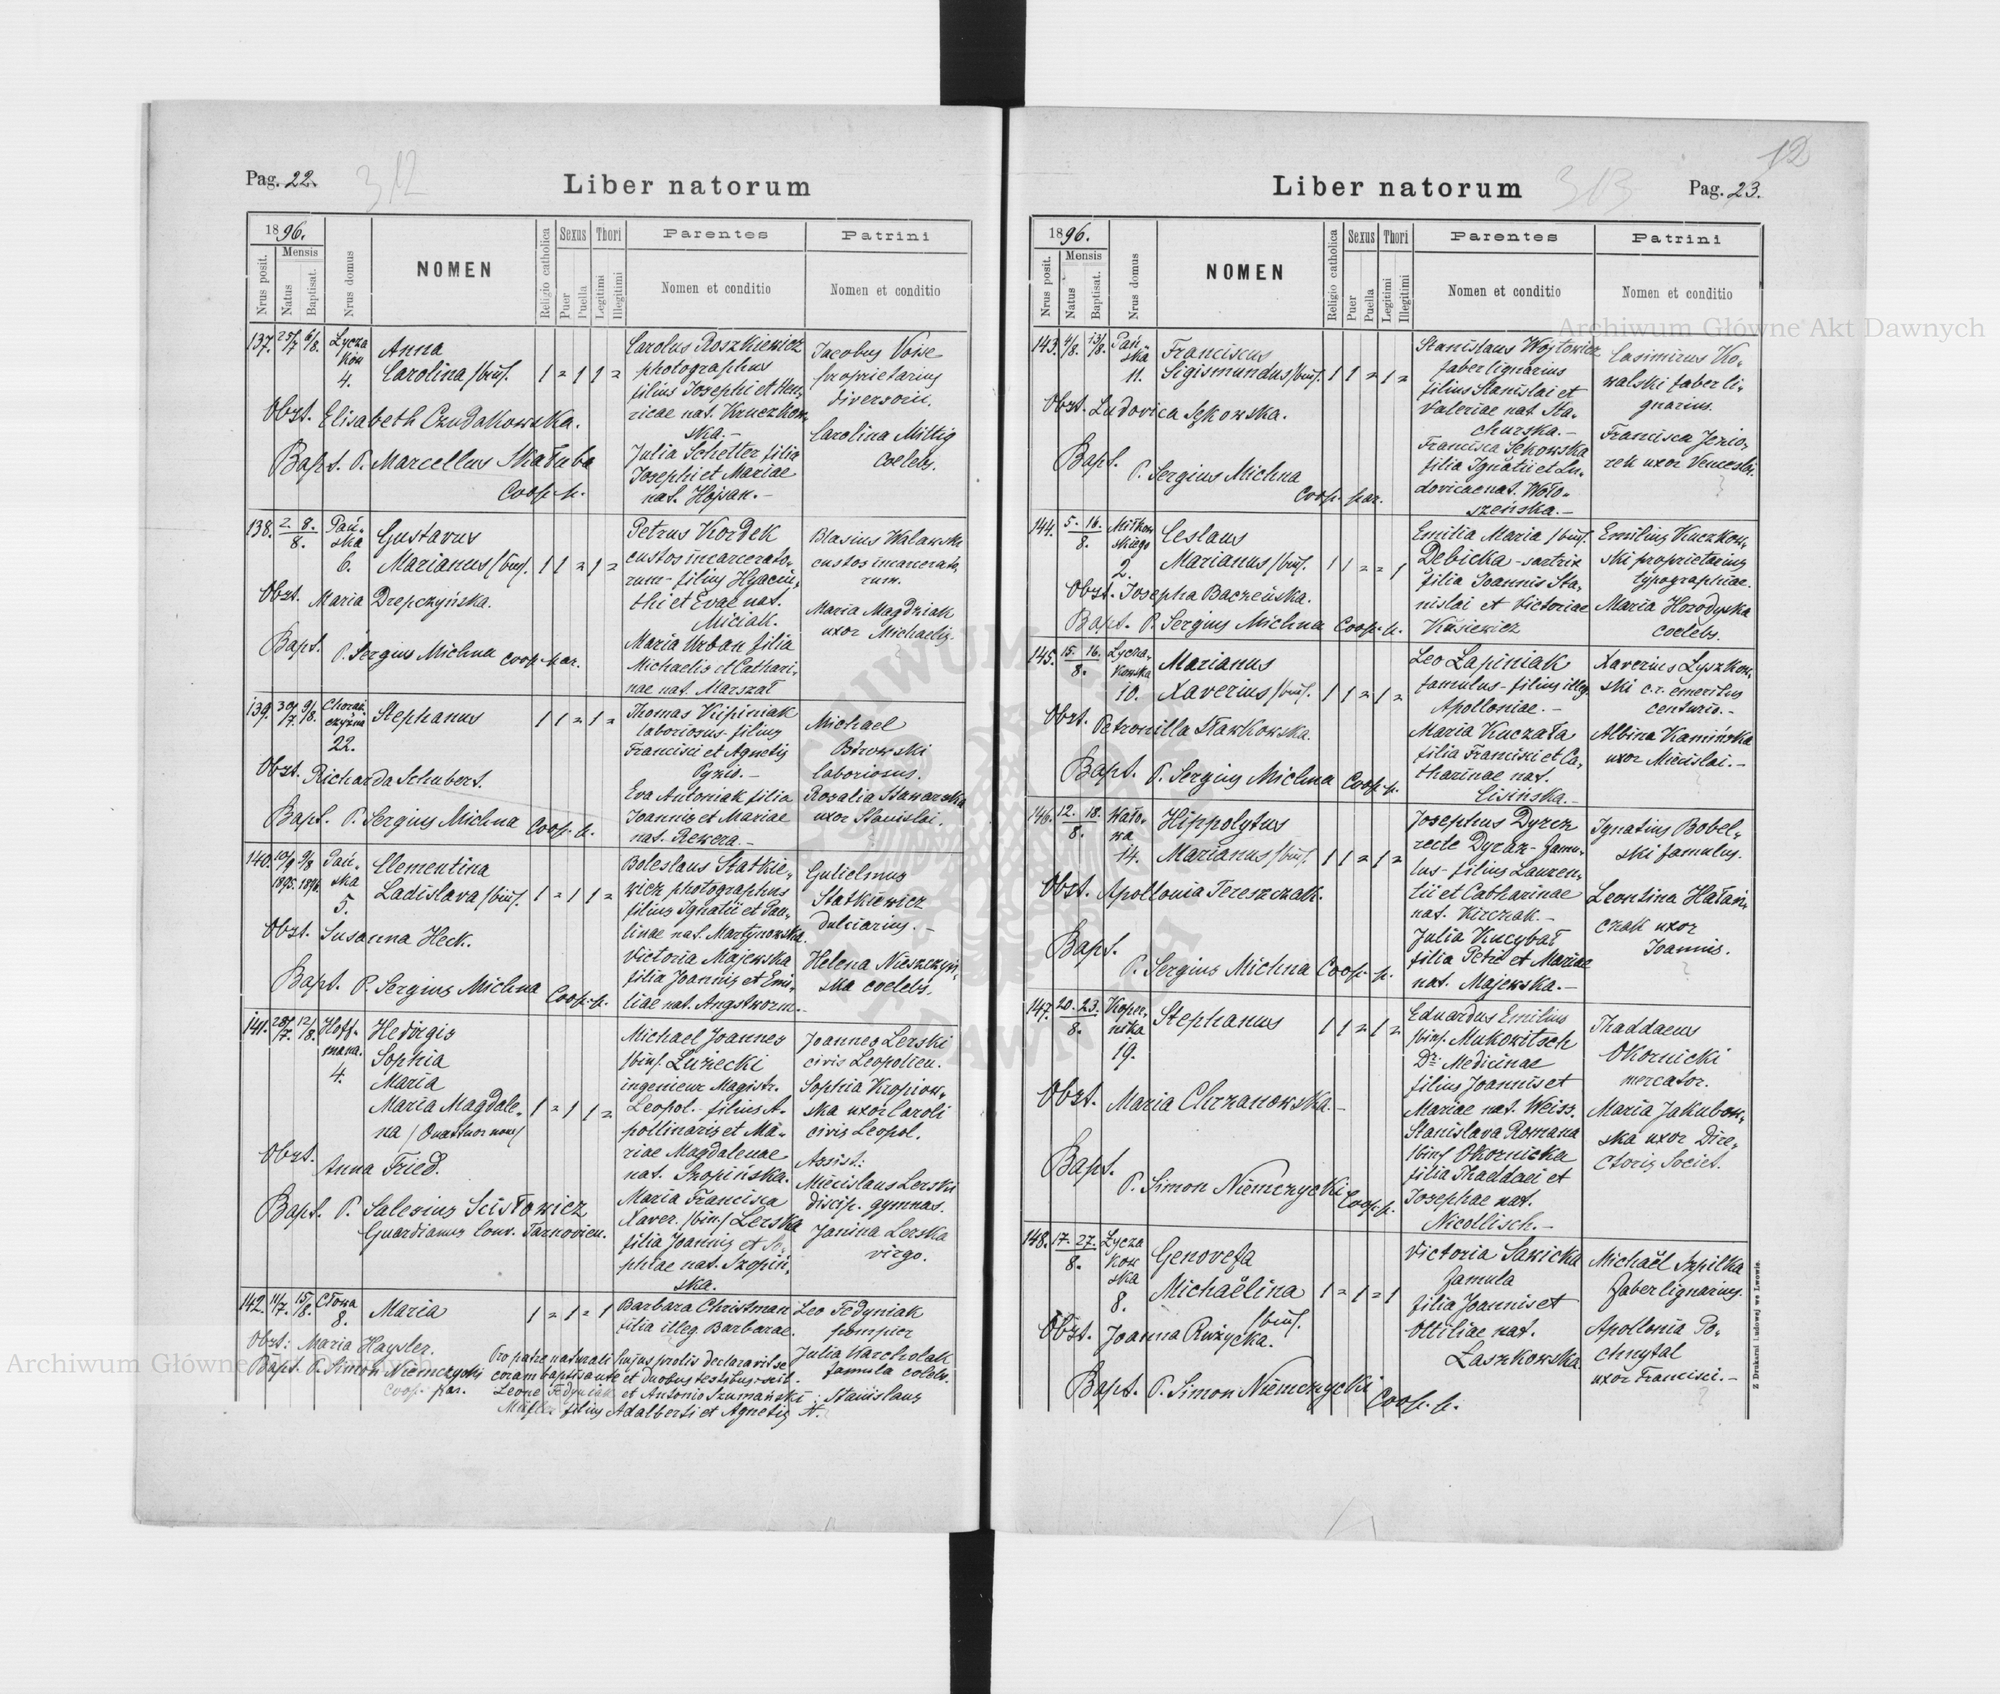 Pag. 22.
312
Liber natorum
1896.
Nrus posit.
Mensis
Natus
Baptisat.
Nrus domus
NOMEN
Religio catholica
Sexus
Puer
Puella
Thori
Legitimi
Illegitimi
Parentes
Nomen et conditio
Patrini
Nomen et conditio
137. 25/7 6/8. Lycza
kow
4.
Anna
Carolina /bin/. 1 = 1 1 =
Obst. Elisabeth Czudakowska.
Bapt. P. Marcellus Skałuba
Coop. p.
Carolus Roszkiewicz
photographus
filius Josephi et Hen-
ricae nat. Kruczkow-
ska.-
Julia Schetter filia
Josephi et Mariae
nat. Hojsan.-
Jacobus Voise
proprietarius
diversorii.
Carolina Mittig
coelebs.
138. 2. 8.
8.
Pań-
ska
6.
Gustavus
Marianus /bin/. 1 1 = 1 =
Obst. Maria Drepczyńska.
Bapt. P. Sergius Michna coop. par.
Petrus Kordek
custos incarcerato-
rum - filius Hyacin-
thi et Evae nat.
Miciak.
Maria Urban filia
Michaelis et Cathari-
nae nat. Marszał
Blasius Walawski
custos incarcerato
rum.
Maria Magdziak
uxor Michaelis.
139. 30/7 9/8. Chorąż
czyzna
22.
Stephanus 1 1 = 1 =
Obst. Richarda Schubert.
Bapt. P. Sergius Michna Coop. p.
Thomas Kipiniak
laboriosus filius
Francisci et Agnetis
Pyzio.-
Eva Antoniak filia
Joannis et Mariae
nat. Rewera.-
Michael
Borowski
laboriosus.
Rosalia Stawarska
uxor Stanislai.
140. 10/9 9/8
1895. 1896.
Pań-
ska
5.
Clementina
Ladislava /bin/. 1 = 1 1 =
Obst. Susanna Heck.
Bapt. P. Sergius Michna Coop. p.
Boleslaus Statkie-
wicz photographus
filius Ignatii et Pau-
linae nat. Martynowska.
Victoria Majewska
filia Joannis et Emi-
liae nat. Angstworm.-
Gulielmus
Statkiewicz
dulciarius.-
Helena Nieszczyń-
ska coelebs.
141. 28/7. 12/8. Hoff-
mana.
4.
Hedvigis
Sophia
Maria
Maria Magdale-
na /Quattuor nom/ 1 = 1 1 =
Obst.
Anna Fried.
Bapt. P. Salesius Scisłowicz
Guardianus Conv. Tarnovien.
Michael Joannes
/bin/. Łużecki
ingenieur Magistr.
Leopol.- filius A-
pollinaris et Ma-
riae Magdalenae
nat. Szopińska.
Maria Francisca
Xaver. /bin/ Lerska
filia Joannis et So-
phiae nat. Szopiń-
ska.
Joannes Lerski
civis Leopolien.
Sophia Kropiow-
ska uxor Caroli
civis Leopol.
Assist:
Miecislaus Lerski
discip. gymnas.
Janina Lerska
virgo.
142. 14/7. 15/8. Cłowa
8.
Maria 1 = 1 = 1
Obst: Maria Haysler.
Bapt. P. Simon Niemczycki
Coop. par.
Barbara Christman
filia illeg. Barbarae.
Leo Fedyniak
pompier
Julia Karcholak
famula coelebs.
Pro patre naturali hujus prolis declaravit se
coram baptisante et duobus testibus scil.
Leone Fedyniak et Antonio Szumański : Stanislaus
filius Adalberti et Agnetis
Liber natorum
313
Pag. 23.
12
1896.
Nrus posit.
Mensis
Natus
Baptisat.
Nrus domus
NOMEN
Religio catholica
Sexus
Puer
Puella
Thori
Legitimi
Illegitimi
Parentes
Nomen et conditio
Patrini
Nomen et conditio
143. 4/8. 13/8. Pań-
ska
11.
Franciscus
Sigismundus /bin/. 1 1 = 1 =
Obst. Ludovica Sękowska.
Bapt.
P. Sergius Michna
Coop. par.
Stanislaus Wojtowicz
faber lignarius
filius Stanislai et
Valeriae nat. Sta-
churska.-
Francisca Sękowska
filia Ignatii et Lu-
dovicae nat. Woło-
szeńska.-
Casimirus Ko-
walski faber li-
gnarius.
Francisca Jezio-
rek uxor Venceslai.
144. 5. 16.
8.
Miłkow
skiego
2.
Ceslaus
Marianus /bin/. 1 1 = = 1
Obst. Josepha Baczeńska.
Bapt. P. Sergius Michna Coop. p.
Emilia Maria /bin/.
Debicka - sartrix
filia Joannis Sta-
nislai et Victoriae
Kusiewicz
Emilius Kuczkow-
ski proprietarius
typographiae.
Maria Horodyska
coelebs.
145. 15. 16.
8.
Lycza-
kowska
10.
Marianus
Xaverius /bin/. 1 1 = 1 =
Obst. Petronilla Sławkowska.
Bapt. P. Sergius Michna Coop. p.
Leo Łapiniak
famulus - filius illeg.
Apolloniae.-
Maria Kuczała
filia Francisci et Ca-
tharinae nat.
Cisińska.-
Xaverius Łyszkow-
ski c.r. emeritus
centurio.-
Albina Kamińska
uxor Miecislai.-
146. 12. 18.
8.
14.
Hippolytus
Marianus /bin/. 1 1 = 1 =
Obst. Apollonia Tereszczak.
Bapt.
P. Sergius Michna Coop. p.
Josephus Dyrcz
recte Dyraz - famu-
lus - filius Lauren-
tii et Catharinae
nat. Kirczak.-
Julia Kucybał
filia Petri et Mariae
nat. Majewska.-
Ignatius Bobel-
ski famulus.
Leontina Hałani-
czak uxor
Joannis.
147. 20. 23.
8.
Koper-
nika
19.
Stephanus 1 1 = 1 =
Obst. Maria Chrzanowska.-
Bapt.
P. Simon Niemczycki Coop. p.
Eduardus Emilius
/bin/. Mukowitsch
Dr. Medicinae
filius Joannis et
Mariae nat. Weiss.
Stanislava Romana
/bin/ Okornicka
filia Thaddaei et
Josephae nat.
Nicollisch.-
Thaddaeus
Okornicki
mercator.
Maria Jakubow-
ska uxor Dire-
ctoris Societ.
148. 17. 27.
8.
Lycza
kow
ska
8.
Genovefa
Michaëlina 1 = 1 = 1
/bin/.
Obst. Joanna Rużycka.
Bapt. P. Simon Niemczycki Coop. p.
Victoria Sawicka
famula
filia Joannis et
Ottiliae nat.
Łaszkowska
Michaël Szpilka
faber lignarius.
Apollonia Po-
chnytal
uxor Francisci.-
Z Drukarni Ludowej we Lwowie.
Archiwum Główne Akt Dawnych
Archiwum Główne Akt Dawnych